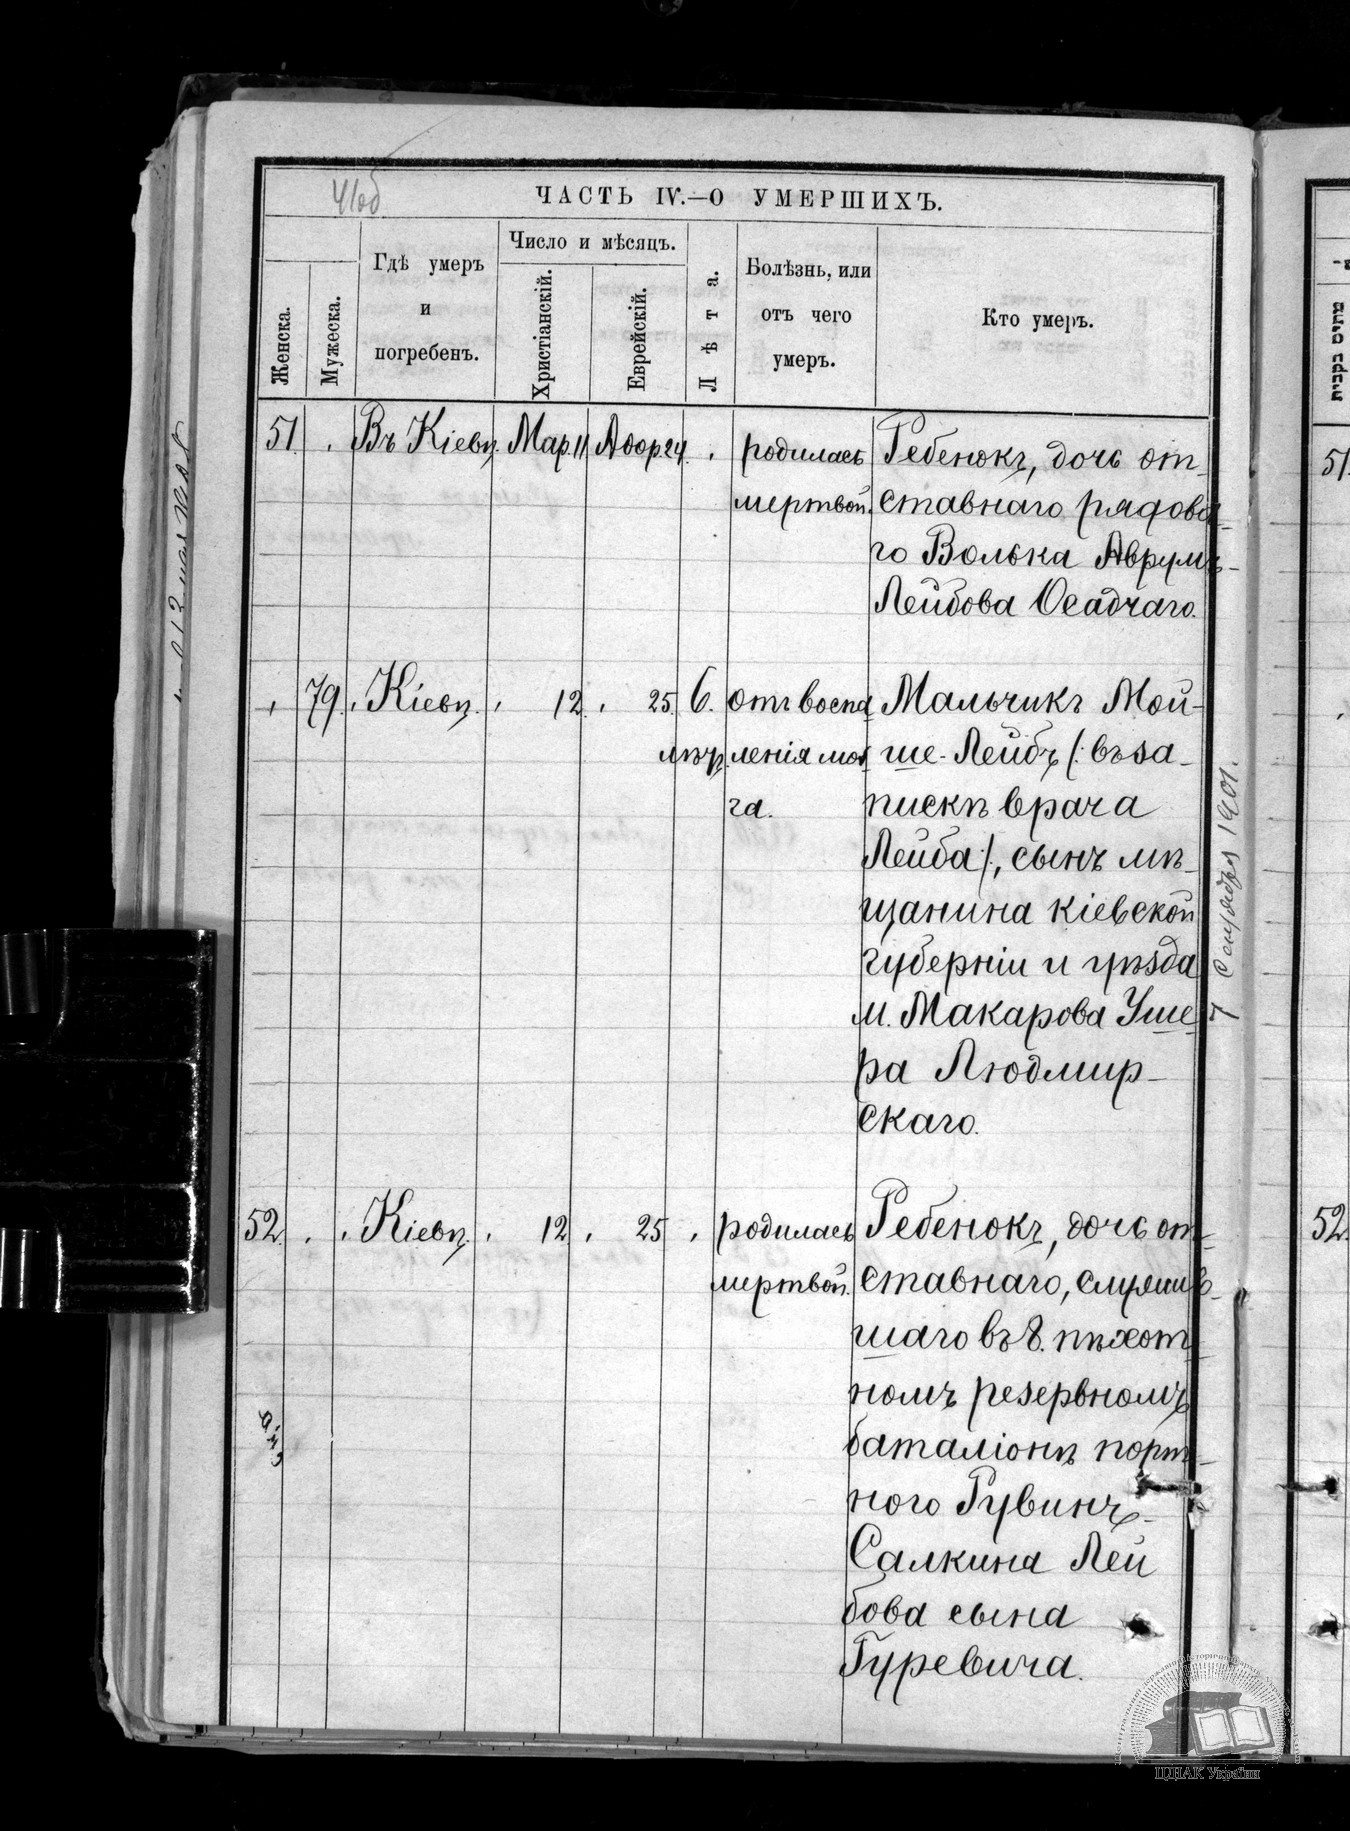 41об
ЧАСТЬ IV.—О УМЕРШИХЪ.
Женска.
Мужеска.
Гдѣ умеръ
и
погребенъ.
Число и мѣсяцъ.
Христіанскій.
Еврейскій.
Лѣта.
Болѣзнь, или
отъ чего
умеръ.
Кто умеръ.
51. Въ Кіевѣ. Мар. 11 Адор. 24 родилась Ребенокъ, дочь от-
мертвой. ставнаго рядова-
го Волька Аврумъ-
Лейбова Осадчаго.
79. Кіевѣ. 12. 25. 6. отъ воспа- Мальчикъ Мой-
мѣц. ленія моз- ше-Лейбъ (: въ за-
га. пискѣ врача
Лейба:), сынъ мѣ-
щанина Кіевской
губерніи и уѣзда
м. Макарова Уше-
ра Людмир-
скаго.
52. Кіевѣ. 12. 25. родилась Ребенокъ, дочь от-
мертвой. ставнаго, служив-
шаго въ 8. пѣхот-
номъ резервномъ
баталіонѣ порт-
ного Рувинъ-
Салкина Лей
бова сына
Гуревича.
1901.
מתים בקבית
51.
52.
ЦДІАК України